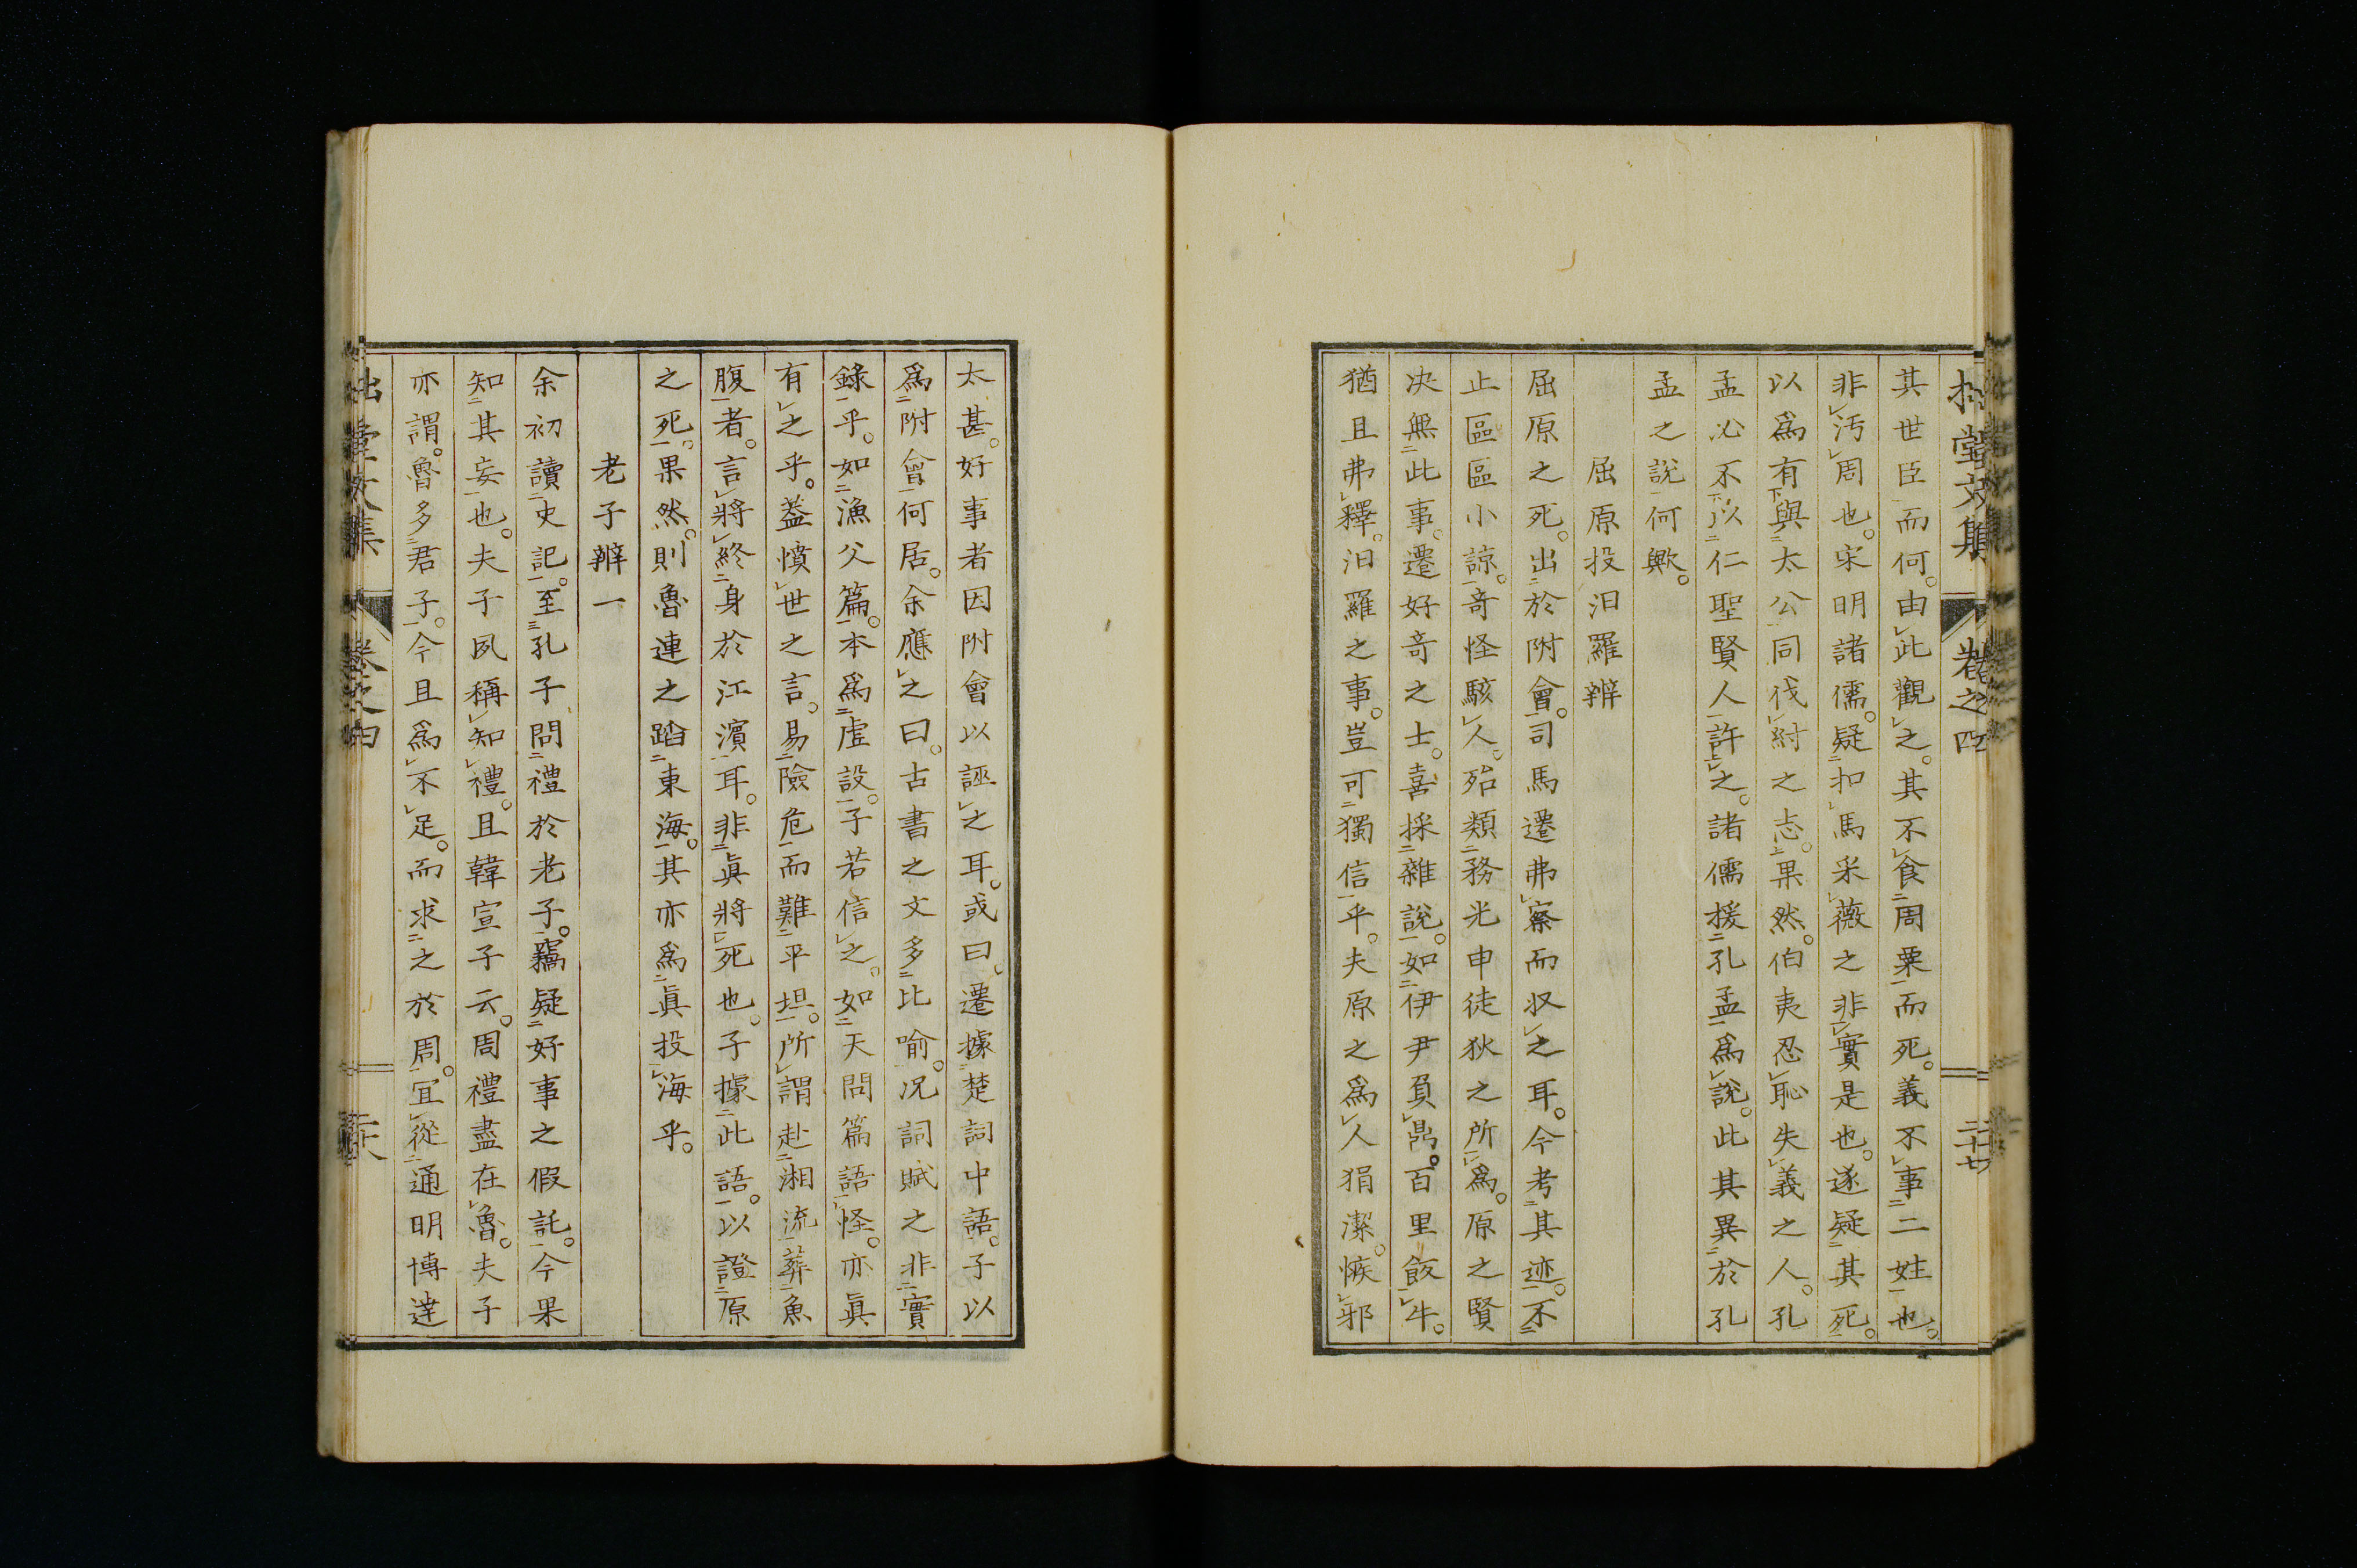 拙堂文集 卷之四 二十七
其世臣而何。由此觀之。其不食周粟而死。義不事二姓也。
非汚周也。宋明諸儒。疑扣馬采薇之非實是也。遂疑其死。
以爲有與太公同伐紂之志。果然。伯夷忍恥失義之人。孔
孟必不以仁聖賢人許之。諸儒援孔孟爲說。此其異於孔
孟之說何歟。
屈原投汨羅辨
屈原之死。出於附會。司馬遷弗察而収之耳。今考其迹。不
止區區小諒。奇怪駭人。殆類務光申徒狄之所爲。原之賢
决無此事。遷好奇之士。喜採雜說。如伊尹負鼎。百里飯牛。
猶且弗釋。汨羅之事。豈可獨信乎。夫原之爲人狷潔。懷邪
太甚。好事者因附會以誣之耳。或曰。遷據楚詞中語。子以
爲附會何居。余應之曰。古書之文多比喻。况詞賦之非實
錄乎。如漁父篇。本爲虛設。子若信之。如天問篇語怪。亦眞
有之乎。葢憤世之言。易險危而難平坦。所謂赴湘流葬魚
腹者。言將終身於江濱耳。非眞將死也。子據此語。以證原
之死。果然。則魯連之蹈東海。其亦爲眞投海乎。
老子辨一
余初讀史記。至孔子問禮於老子。竊疑好事之假託。今果
知其妄也。夫子夙稱知禮。且韓宣子云。周禮盡在魯。夫子
亦謂。魯多君子。今且爲不足。而求之於周。宜從通明博達
拙堂文集 卷之四